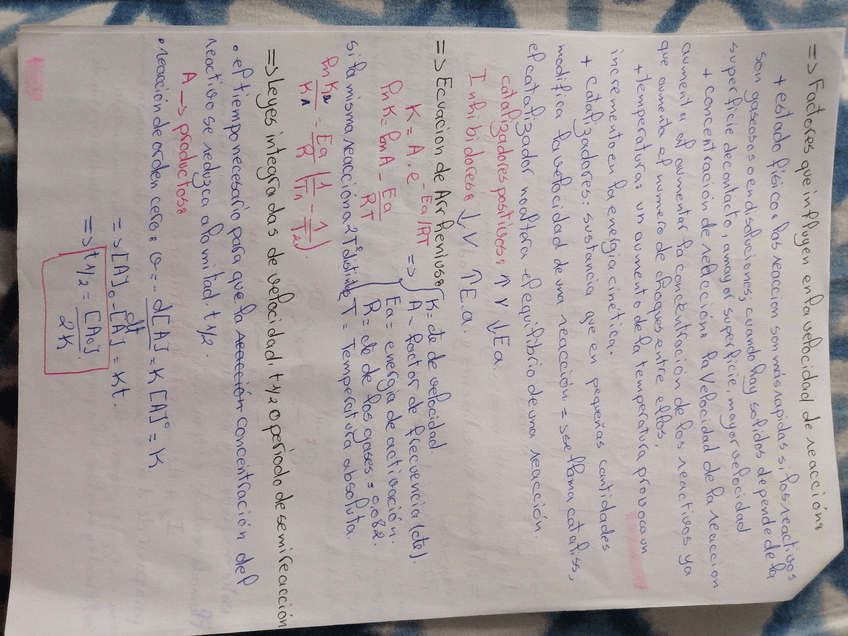 => Factores que influyen en la velocidad de reacción:
+ estado físico: las reaccion son más rapidas si los reactivos
son gaseosos o en disoluciones; cuando hay solidos depende de la
superficie de contacto, a mayor superficie, mayor velocidad
+ concentración de reacción: la velocidad de la reaccion
aumenta al aumentar la concentración de los reactivos ya
que aumenta el numero de choques entre ellos.
+ temperatura: un aumento de la temperatura provoca un
incremento en la energía cinética.
+ catalizadores: sustancia que en pequeñas cantidades
modifica la velocidad de una reacción => se llama cataliss,
el catalizador no altera el equilibrio de una reacción.
catalizadores positivos: ↑ v ↓ Ea.
Inhibidores: ↓ v ↑ E.a.
=> Ecuacion de Arrhenius:
K = A · e^-Ea/RT => { K = cte de velocidad
A = factor de frecuencia (cte).
ln K = ln A - Ea/RT
Ea = energía de activación.
R = cte de los gases = 0,082.
si la misma reacción a 2 Tª distintas
T = Temperatura absoluta.
ln K2/K1 = Ea/R (1/T1 - 1/T2).
=> Leyes integradas de velocidad, t 1/2 o periodo de semireacción
· el tiempo necesario para que la reacción concentración del
reactivo se reduzca a la mitad t 1/2.
A -> productos:
· reacción de orden cero: v = - d[A]/dt = K [A]° = K
=> [A]o - [A] = Kt.
=> t 1/2 = [Ao]/2K